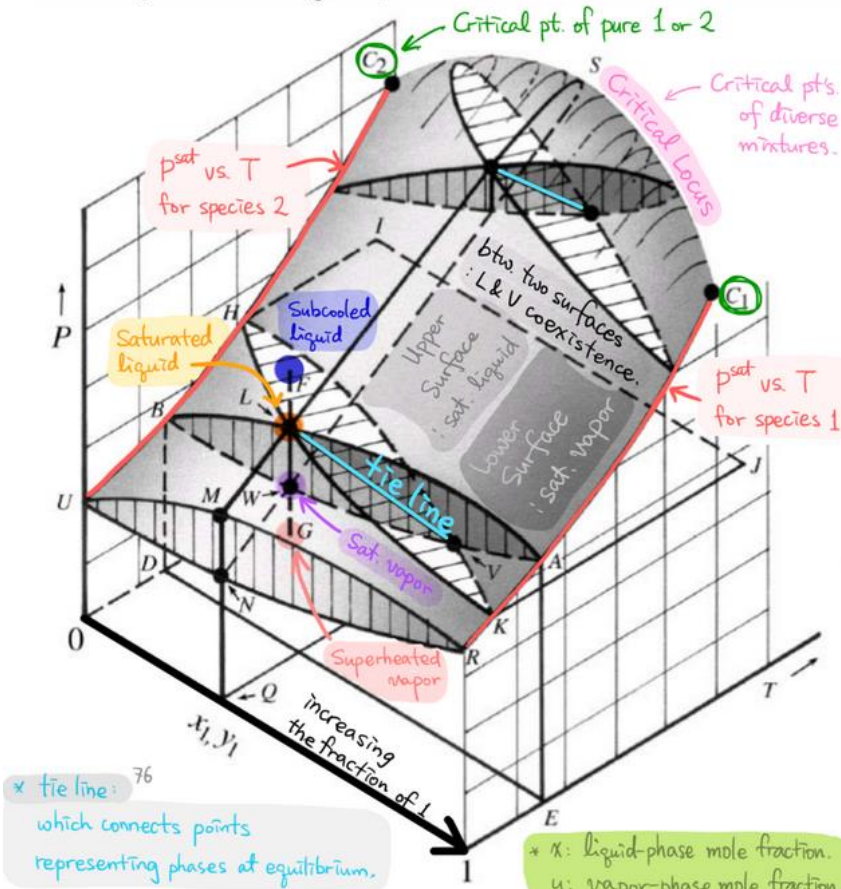 Critical pt. of pure 1 or 2
C2
S
Critical Locus
Critical pt's.
of diverse
mixtures.
psat vs. T
for species 2
I
btw. two surfaces
: L & V coexistence.
C1
P
H
Subcooled
liquid
Saturated
liquid
F
Upper
Surface
: sat. liquid
Lower
Surface
: sat. vapor
psat vs. T
for species 1
L
B
tie line
J
U
M
W
G
Sat. vapor
V
A
D
N
K
R
Superheated
vapor
0
Q
T
x1, y1
increasing
the fraction of 1
76
* tie line:
which connects points
representing phases at equilibrium.
E
1
* x: liquid-phase mole fraction.
y: vapor-phase mole fraction